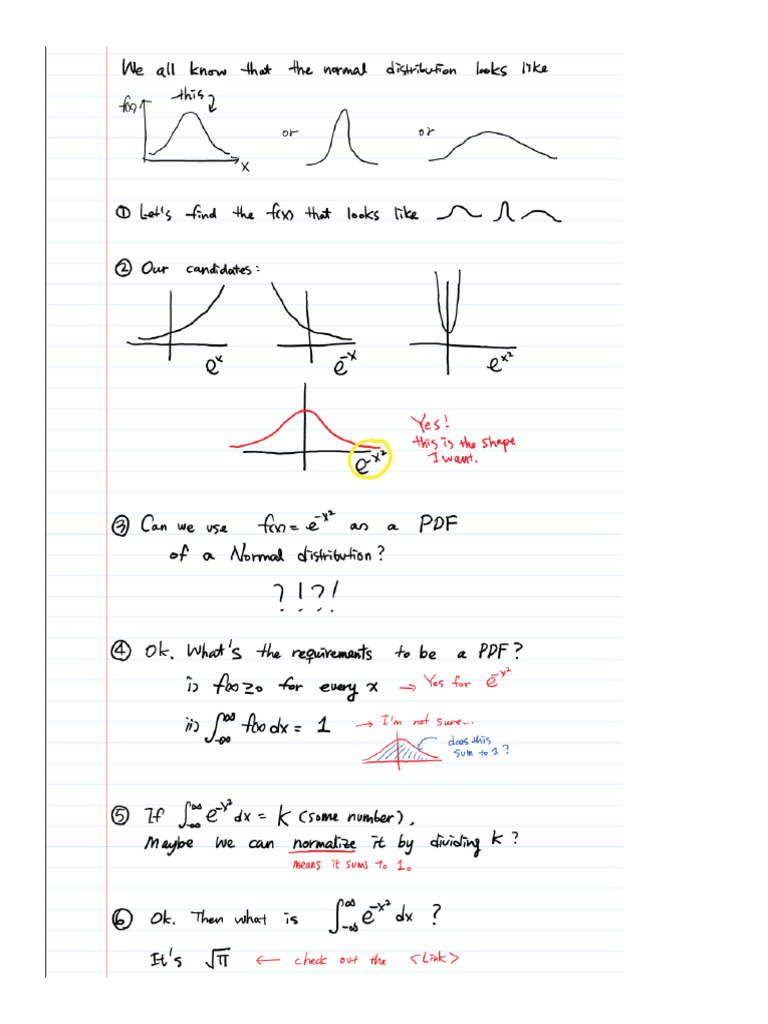 We all know that the normal distribution looks like
this
f(x)
or
or
x
① Let's find the f(x) that looks like
② Our candidates:
e^x
e^-x
e^x²
Yes!
this is the shape
I want.
e^-x²
③ Can we use f(x) = e^-x² as a PDF
of a Normal distribution?
? ! ? !
④ Ok. What's the requirements to be a PDF?
i) f(x) ≥ 0 for every x → Yes for e^-x²
ii) ∫_-∞^∞ f(x) dx = 1 → I'm not sure...
does this
sum to 1?
⑤ If ∫_-∞^∞ e^-x² dx = k (some number),
Maybe we can normalize it by dividing k?
means it sums to 1.
⑥ Ok. Then what is ∫_-∞^∞ e^-x² dx ?
It's √π ← check out the <Link>